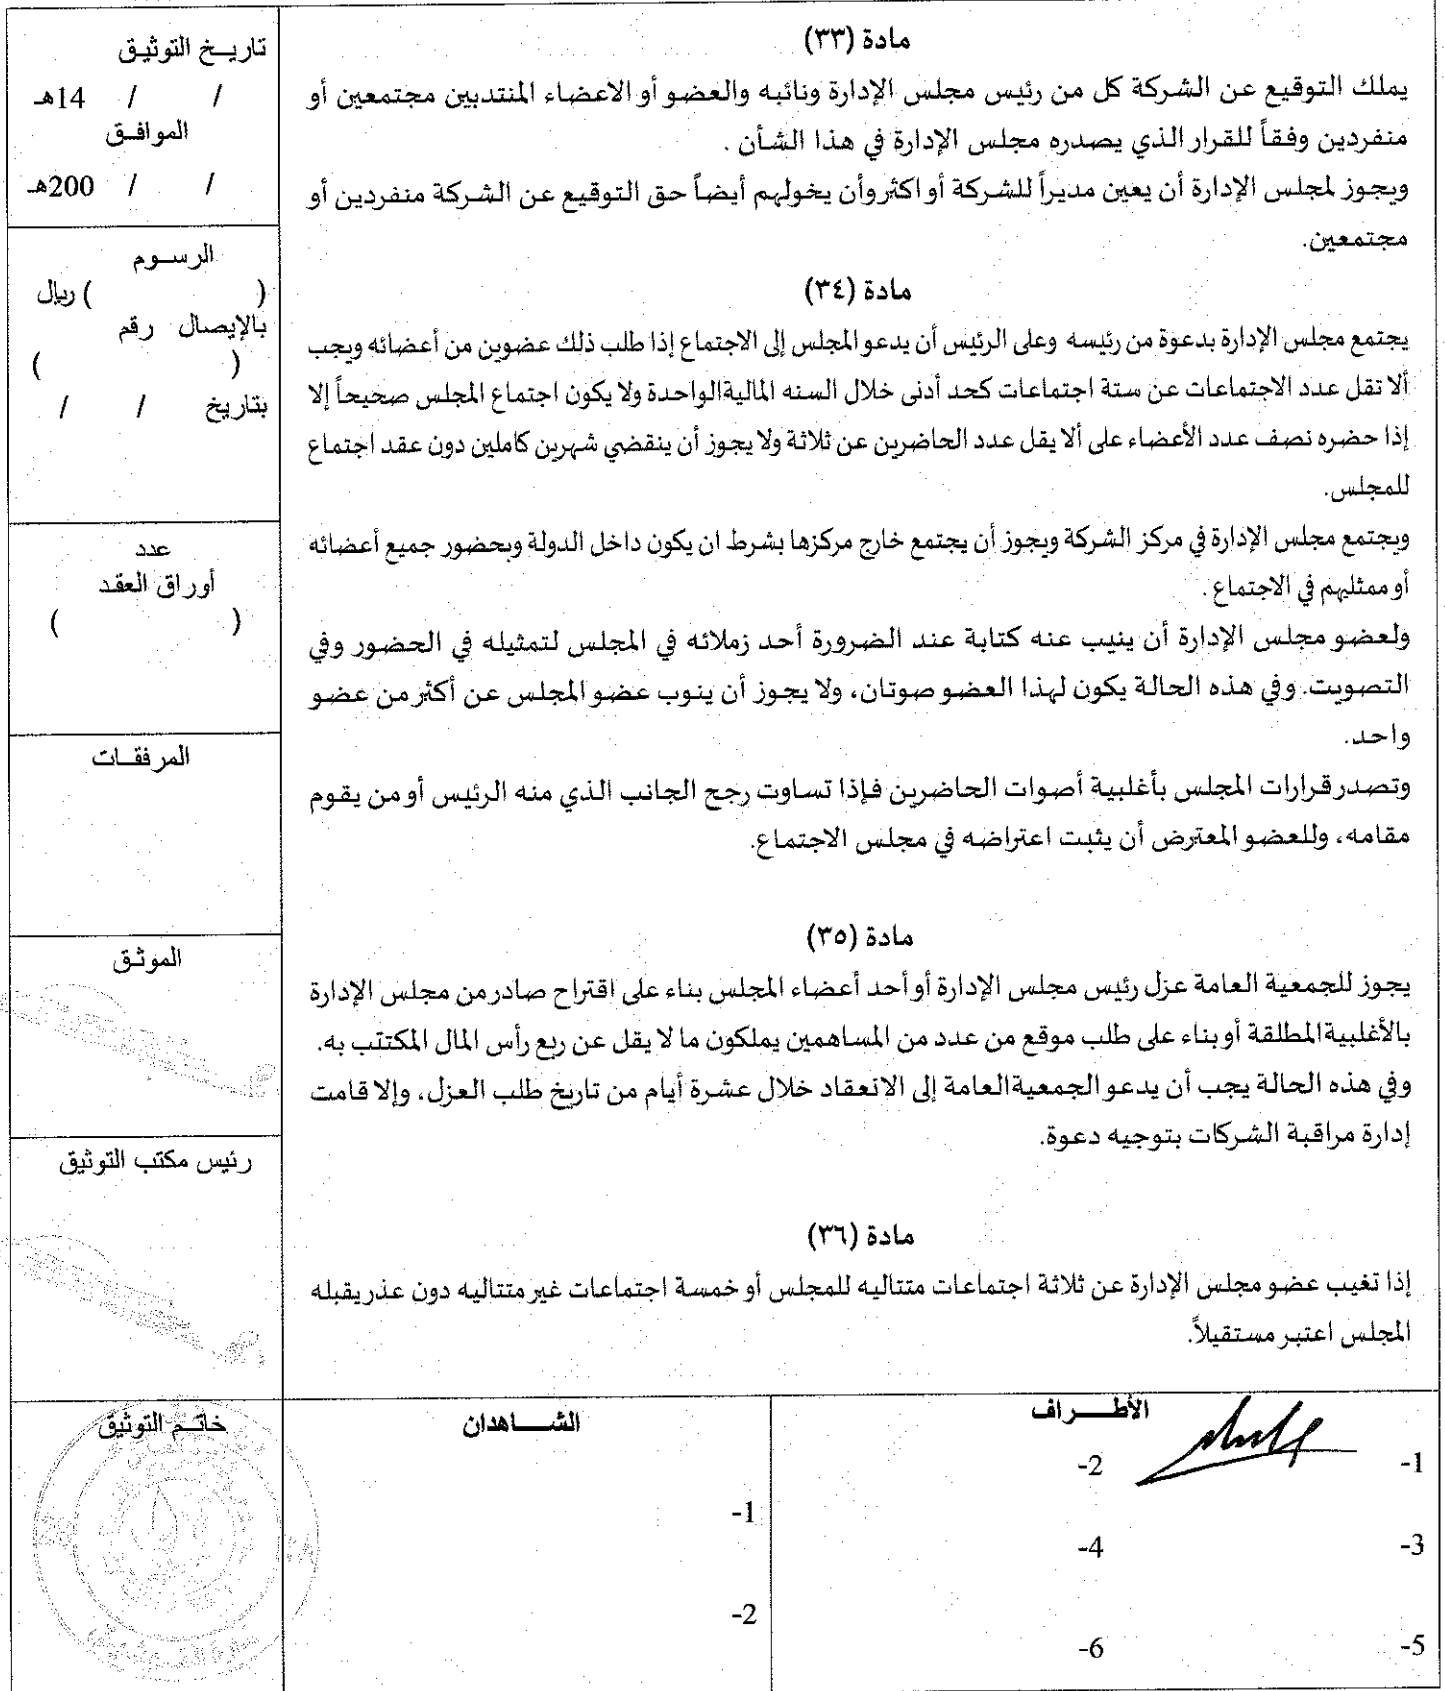 مادة (٣٣)
يملك التوقيع عن الشركة كل من رئيس مجلس الإدارة ونائبه والعضو أو الاعضاء المنتدبين مجتمعين أو
منفردين وفقاً للقرار الذي يصدره مجلس الإدارة في هذا الشأن .
ويجوز لمجلس الإدارة أن يعين مديراً للشركة أو اكثر وأن يخولهم أيضاً حق التوقيع عن الشركة منفردين أو
مجتمعين.
مادة (٣٤)
يجتمع مجلس الإدارة بدعوة من رئيسه وعلى الرئيس أن يدعو المجلس إلى الاجتماع إذا طلب ذلك عضوين من أعضائه ويجب
ألا تقل عدد الاجتماعات عن ستة اجتماعات كحد أدنى خلال السنه المالية الواحدة ولا يكون اجتماع المجلس صحيحاً إلا
إذا حضره نصف عدد الأعضاء على ألا يقل عدد الحاضرين عن ثلاثة ولا يجوز أن ينقضي شهرين كاملين دون عقد اجتماع
للمجلس.
ويجتمع مجلس الإدارة في مركز الشركة ويجوز أن يجتمع خارج مركزها بشرط ان يكون داخل الدولة وبحضور جميع أعضائه
أو ممثليهم في الاجتماع .
ولعضو مجلس الإدارة أن ينيب عنه كتابة عند الضرورة أحد زملائه في المجلس لتمثيله في الحضور وفي
التصويت. وفي هذه الحالة يكون لهذا العضو صوتان، ولا يجوز أن ينوب عضو المجلس عن أكثر من عضو
واحد.
وتصدر قرارات المجلس بأغلبية أصوات الحاضرين فإذا تساوت رجح الجانب الذي منه الرئيس أو من يقوم
مقامه، وللعضو المعترض أن يثبت اعتراضه في مجلس الاجتماع.
مادة (٣٥)
يجوز للجمعية العامة عزل رئيس مجلس الإدارة أو أحد أعضاء المجلس بناء على اقتراح صادر من مجلس الإدارة
بالأغلبية المطلقة أو بناء على طلب موقع من عدد من المساهمين يملكون ما لا يقل عن ربع رأس المال المكتتب به.
وفي هذه الحالة يجب أن يدعو الجمعية العامة إلى الانعقاد خلال عشرة أيام من تاريخ طلب العزل، وإلا قامت
إدارة مراقبة الشركات بتوجيه دعوة.
مادة (٣٦)
إذا تغيب عضو مجلس الإدارة عن ثلاثة اجتماعات متتاليه للمجلس أو خمسة اجتماعات غير متتاليه دون عذر يقبله
المجلس اعتبر مستقيلاً.
تاريــخ التوثيق
/ / 14هـ
الموافــق
/ / 200هـ
الرســوم
( ) ريال
بالإيصال رقم
( )
بتاريخ / /
عدد
أوراق العقد
( )
المرفقــات
الموثـق
رئيس مكتب التوثيق
الأطـــراف
-1 -2
-3 -4
-5 -6
الشـــاهدان
-1
-2
خاتــم التوثيق